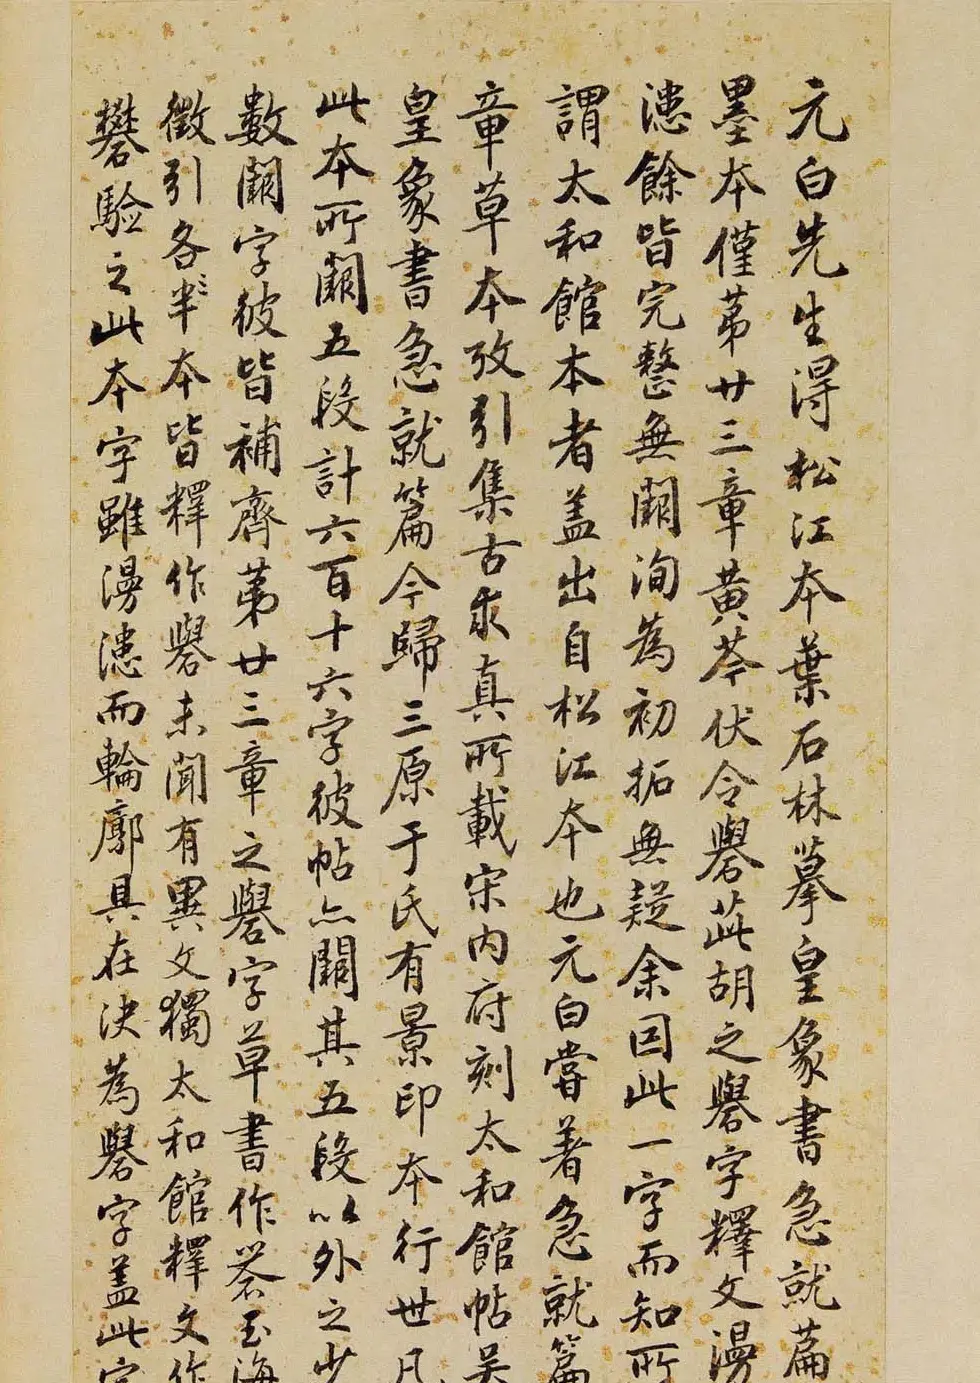 元白先生得松江本葉石林摹皇象書急就篇
墨本僅第廿三章黃芩伏令礜茈胡之礜字釋文漫
漶餘皆完整無闕洵為初拓無疑余因此一字而知所
謂太和館本者盖出自松江本也元白嘗著急就篇
章草本攷引集古求真所載宋内府刻太和館帖吴
皇象書急就篇今歸三原于氏有景印本行世凡
此本所闕五段計六百十六字彼帖亦闕其五段以外之少
數闕字彼皆補齊第廿三章之礜字草書作䂮玉海
徵引各本皆釋作礜未聞有異文獨太和館釋文作
礬驗之此本字雖漫漶而輪廓具在決為礜字盖此字